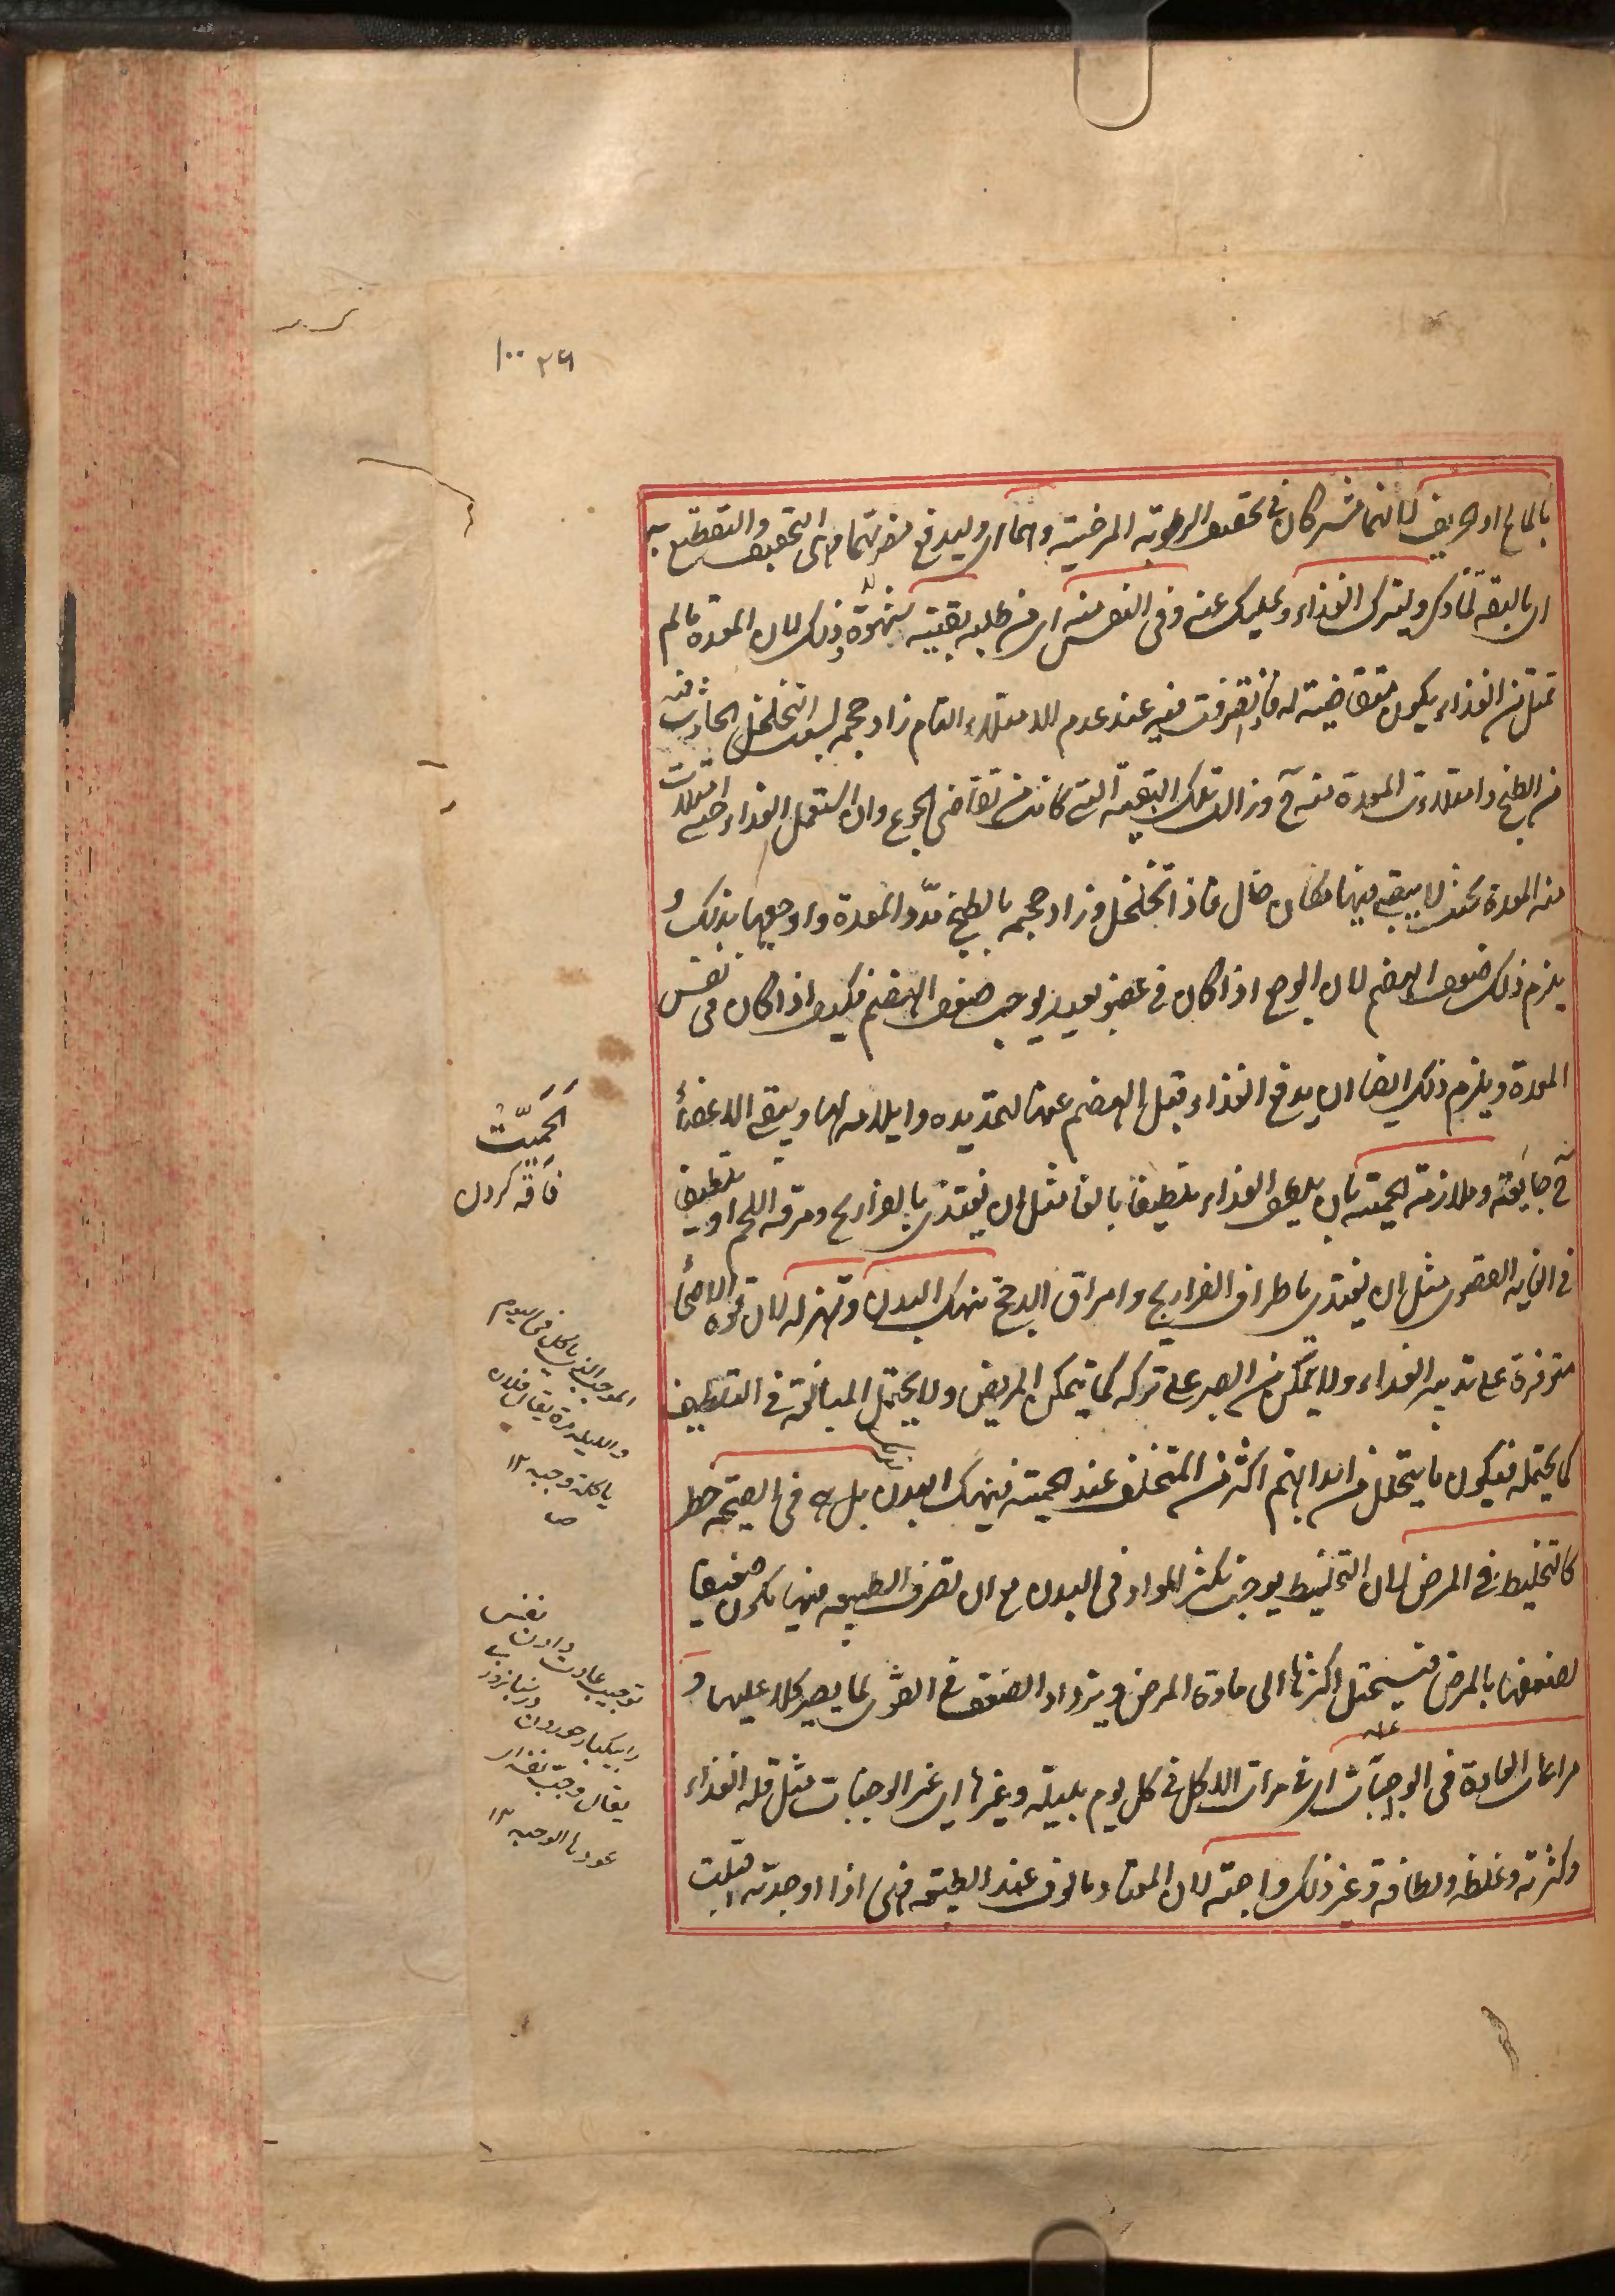 ۲۶ ۱۰۰
بالمالح او الحريف لانهما مشتركان في تجفيف الرطوبة المرخية وهما اى وليدفع مضرتهما اى التجفيف والتقطيع به
اى بالتفه لما ذكر وليترك الغذاء وليمسك عنه وفى النفس منه اى من طلبه بقية شهوة وذلك لان المعدة ما لم
تمتل من الغذاء يكون متقاضية له فاذا تصرفت فيه عند عدم الامتلاء التام زاد حجمه بسبب التخلخل الحادث فيه
من الطبخ وامتلاءت المعدة منه ح وزالت تلك البقية التى كانت من تقاضى الجوع وان استعمل الغذاء حتى امتلات
منه المعدة بحيث لا يبقى فيها مكان خال فاذا تخلخل وزاد حجمه بالطبخ مدد المعدة واوجعها بذلك و
يلزم ذلك ضعف الهضم لان الوجع اذا كان في عضو بعيد يوجب ضعف الهضم فكيف اذا كان فى نفس
المعدة ويلزم ذلك ايضا ان يدفع الغذاء قبل الهضم عنها لتمديده وايلامه لها ويبقى الاعضاء
ح جايعة وملازمة الحمية بان يلطف الغذاء تلطيفا بالغا مثل ان يغتذى بالفراريج ومرقة اللحم او تلطيفا
فى الغاية القصوى مثل ان يغتذى باطراف الفراريج وامراق الدجج تنهك البدن وتهزله لان قوة الاصحاء
متوفرة على تدبير الغذاء ولا يتمكن من الصبر على تركه كما يتمكن المريض ولا يحتمل المبالغة في التلطيف
كما يحتمله فيكون ما يتحلل من ابدانهم اكثر من المتخلف عند الحمية فينهك البدن بل هى فى الصحة خطر
كالتخليط في المرض لان التخليط يوجب تكثر المواد فى البدن مع ان تصرف الطبيعة فيها يكون ضعيفا
لضعفها بالمرض فيستحيل اكثرها الى مادة المرض ويزداد الضعف في القوى لما يصير كلا عليها و
مراعات العادة فى الوجبات اى في مرات الاكل في كل يوم بليلته وغيرها اى غير الوجبات مثل قلة الغذاء
وكثرته وغلظه ولطافته وغير ذلك واجبة لان المعتاد مالوف عند الطبيعة فهى اذا وجدته قبلت
اَلحَميّت
فاقه كردن
الموجب الذى ياكل فى اليوم
والليلة مرة يقال فلان
ياكل وجبة ۱۲
ص
توجيب عادت دادن نفس
يقال وجب نفسه اى
عودها الوجبة ۱۲